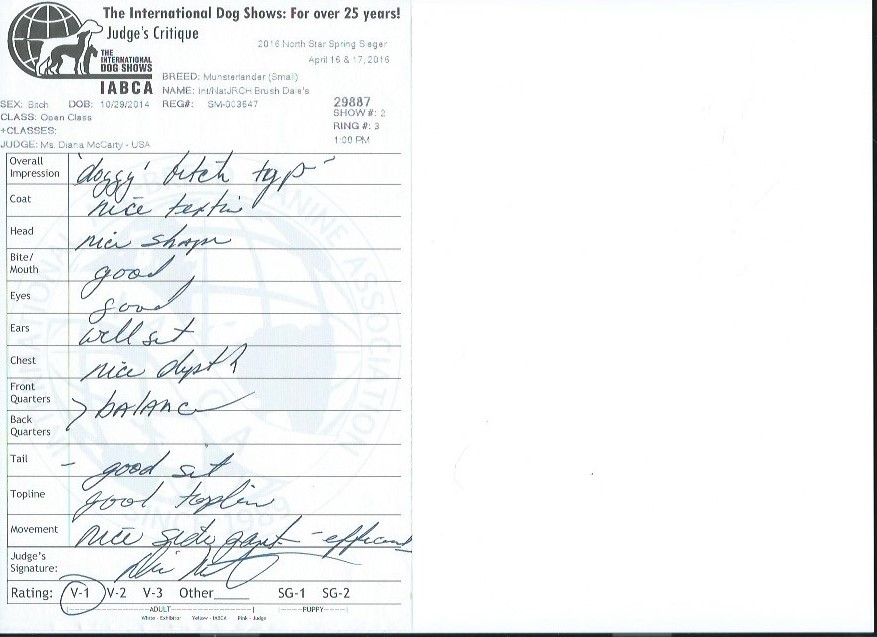 The International Dog Shows: For over 25 years!
Judge's Critique
2016 North Star Spring Sieger
April 16 & 17, 2016
THE INTERNATIONAL DOG SHOWS
IABCA
BREED: Munsterlander (Small)
NAME: Int/Nat/JRCH Brush Dale's
SEX: Bitch DOB: 10/29/2014 REG#: SM-003547
29887
CLASS: Open Class
SHOW #: 2
+CLASSES:
RING #: 3
JUDGE: Ms. Diana McCarty - USA
1:00 PM
Overall Impression 'doggy' bitch type
Coat nice
Head nice shape
Bite/Mouth good
Eyes good
Ears well set
Chest nice depth
Front Quarters
Back Quarters > balance
Tail - good set
Topline good topline
Movement nice side gait - efficient
Judge's Signature:
Rating: V-1 V-2 V-3 Other____ SG-1 SG-2
ADULT PUPPY
White - Exhibitor Yellow - IABCA Pink - Judge